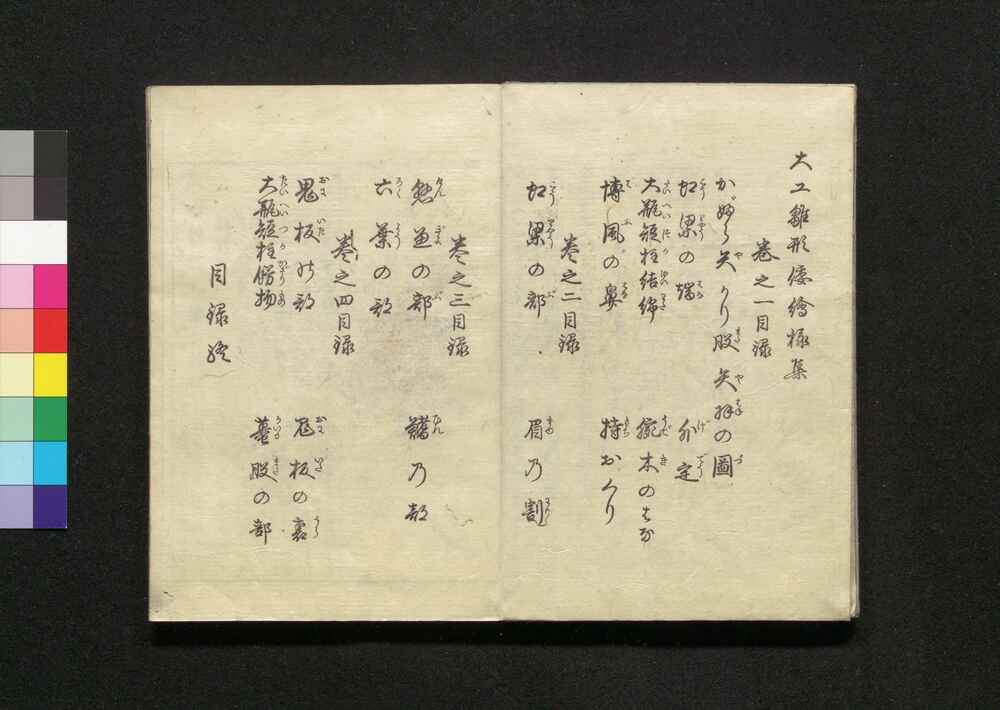 大工雛形倭繪様集
巻之一目録
かぶら矢 くり股 矢羽の圖
虹梁の端
大瓶短柱結綿
博風の鼻
外定
肘木のはな
持おくり
巻之二目録
虹梁の部
眉乃割
巻之三目録
懸魚の部
鰭乃部
六葉の部
巻之四目録
鬼板の部
鬼板の裏
大瓶短柱餝物
蟇股の部
目録終